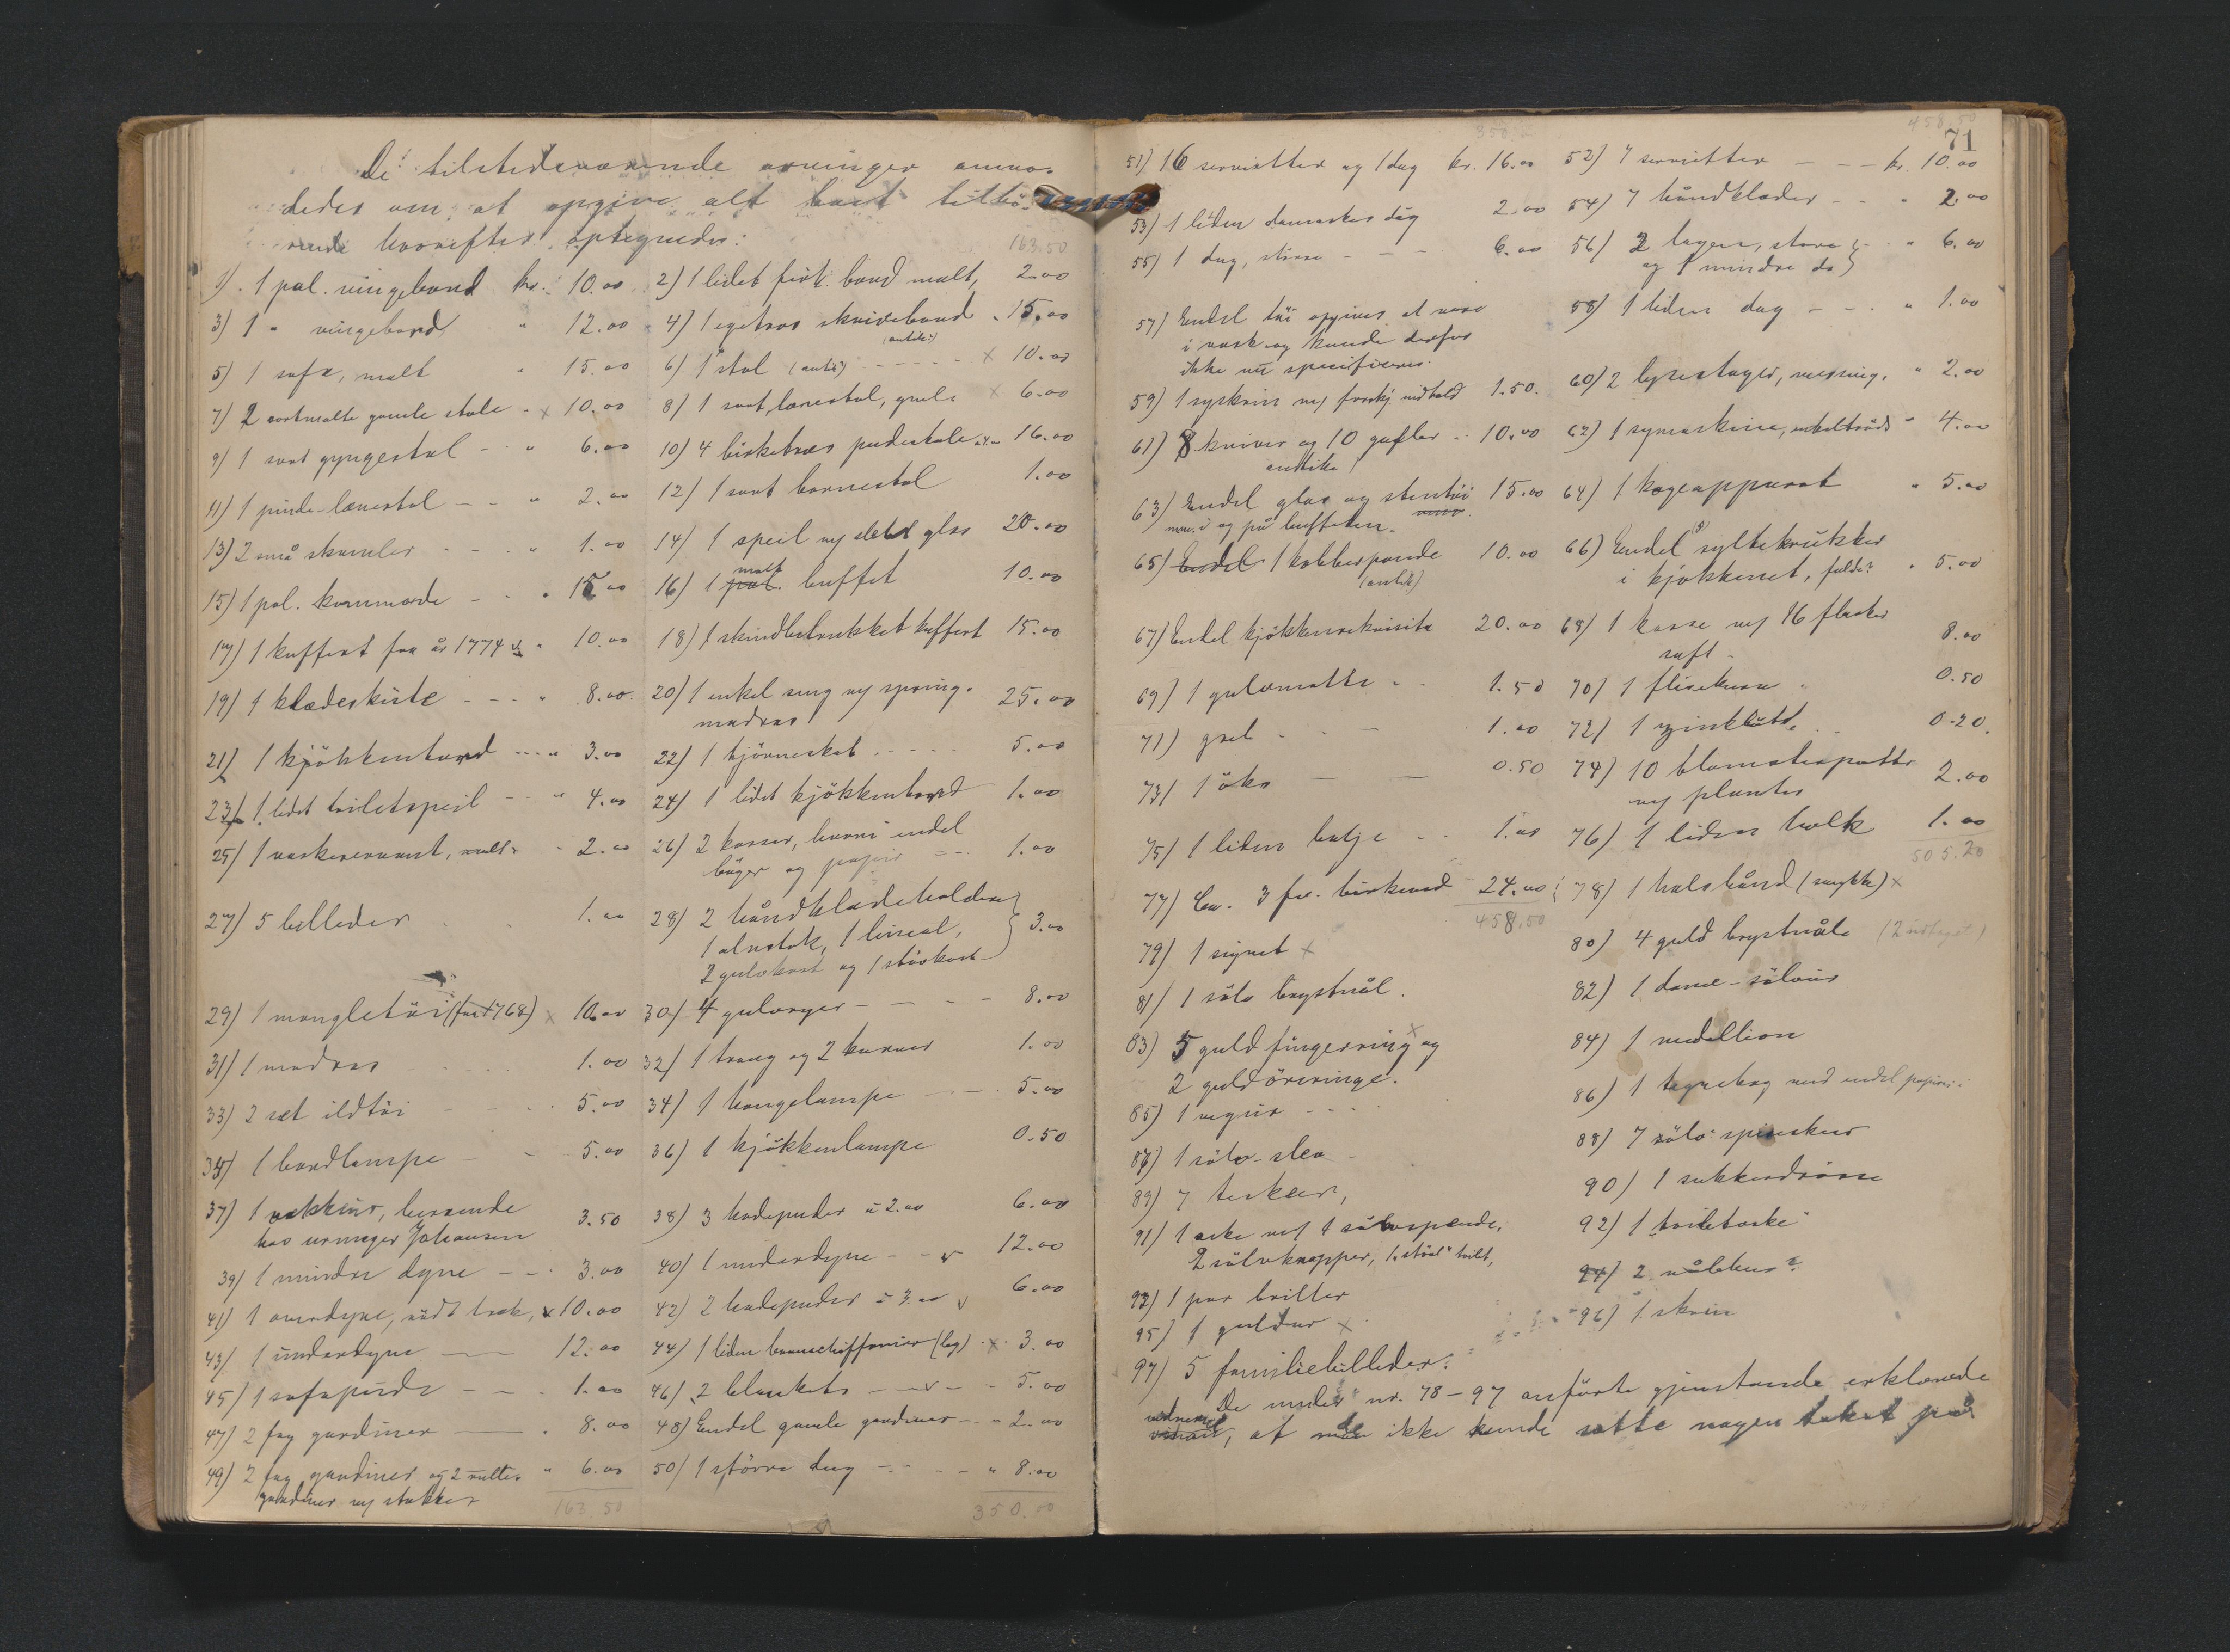 De tilstedeværende arvinger anmo-
dedes om at opgive alt boet tilhö-
rende hvorefter optegnedes:
163.50
1) 1 pol. vingebord kr. 10.00
2) 1 lidet firk. bord malt, 2.00
3) 1 " vingebord " 12.00
4) 1 egetræs skrivebord " 15.00
(antik?)
5) 1 sofa, malt " 15.00
6) 1 stol (antik) - - - - x 10.00
7) 2 sortmalte gamle stole " x 10.00
8) 1 sort lænestol, gml. x 6.00
9) 1 sort gyngestol - " 6.00
10) 4 birketræs pudestole à 4- 16.00
11) 1 pinde-lænestol - - " 2.00
12) 1 sort barnestol 1.00
13) 2 små skamler - - - " 1.00
14) 1 speil m/ slebet glas 20.00
15) 1 pol. kommode - - " 15.00
malt
16) 1 pol. buffet 10.00
17) 1 kuffert fra år 1774 x " 10.00
18) 1 skindbetrukket kuffert 15.00
19) 1 klædeskiste - - - " 8.00
20) 1 enkel seng m/ spring-
madras 25.00
21) 1 kjökkenbord - - - " 3.00
22) 1 hjörneskab - - - - 5.00
23) 1 lidet toiletspeil - - " 4.00
24) 1 lidet kjökkenbord 1.00
25) 1 vaskeservant, malt - " 2.00
26) 2 kasser, hvori endel
böger og papir - - 1.00
27) 5 billeder 1.00
28) 2 håndklædeholdere
1 alnstok, 1 lineal,
2 gulvkost og 1 støvkost } 3.00
29) 1 mangletöi (fra 1768) x 10.00
30) 4 gulvtæpper - - - - 8.00
31) 1 madras 1.00
32) 1 traug og 2 kurver 1.00
33) 2 sæt ildtöi - - - 5.00
34) 1 hængelampe - - 5.00
35) 1 bordlampe - - 5.00
36) 1 kjökkenlampe 0.50
37) 1 vækkeur, beroende
hos urmager Johansen 3.50
38) 3 hodepuder à 2.00 6.00
39) 1 mindre dyne - - 3.00
40) 1 underdyne - - v 12.00
41) 1 overdyne, rödt træk, v 10.00
42) 2 hodepuder à 3.00 v 6.00
43) 1 underdyne - - 12.00
44) 1 liden barnechiffonier (leg) x 3.00
45) 1 sofapude - - - 1.00
46) 2 blankets - v - - 5.00
47) 2 fag gardiner - " 8.00
48) Endel gamle gardiner - " 2.00
49) 2 fag gardiner og 2 rulle-
gardiner m/ stokker " 6.00
50) 1 större dug - - - - " 8.00
163.50
350.00
350
458.50
71
51) 16 servietter og 1 dug kr. 16.00
52) 7 servietter - - - kr. 10.00
53) 1 liden damaskes dug 2.00
54) 7 håndklæder - - " 2.00
55) 1 dug, större - - - 6.00
56) 2 lagen, store
og 1 mindre do } " 6.00
57) Endel töi opgives at være
i vask og kunde derfor
ikke nu specificeres.
58) 1 liden dug - - - " 1.00
59) 1 syskrin m/ forskj. indhold 1.50.
60) 2 lysestager, messing, " 2.00
61) 8 kniver og 10 gafler " 10.00
antike
62) 1 symaskine, enkeltråds " 4.00
63) Endel glas og stentöi 15.00
i og på buffeten.
64) 1 kogeapparat " 5.00
65) Endel 1 kobberpande 10.00
(antik)
66) Endel syltekrukker
i kjökkenet, fulde? " 5.00
67) Endel kjökkenrekvisita 20.00
68) 1 kasse m/ 16 flasker
saft - 8.00
69) 1 gulvmatte - - 1.50
70) 1 flisekurv - 0.50
71) greb - - - 1.00
72) 1 zinkbötte 0.20.
73) 1 öks - - 0.50
74) 10 blomsterpotter
m/ planter 2.00
75) 1 liden balje - - 1.00
76) 1 liden holk 1.00
505.20
77) Ca. 3 fv. birkeved 24.00
458.50
78) 1 halsbånd (smykke) x
79) 1 signet x
80) 4 guld brystnåle (2 udtaget)
81) 1 sölv brystnål.
82) 1 dame-sölvur
83) 5 guld fingerring x og
2 guld öreringe.
84) 1 medallion
85) 1 vægur - - -
86) 1 tegnebog med endel papirer.
87) 1 sölv-slev -
88) 7 sölv spiseskeer
89) 7 teskeer,
90) 1 sukkerdrösse
91) 1 æske m/ 1 sölvspænde,
2 sölvknapper, 1 "stövl"knibt,
92) 1 toiletæske
93) 1 par briller
94) 2 nålehus?
95) 1 guldur x
96) 1 skrin
97) 5 familiebilleder.
De under nr. 78-97 anförte gjenstande erklærede
, at de ikke kunde sætte nogen takst på